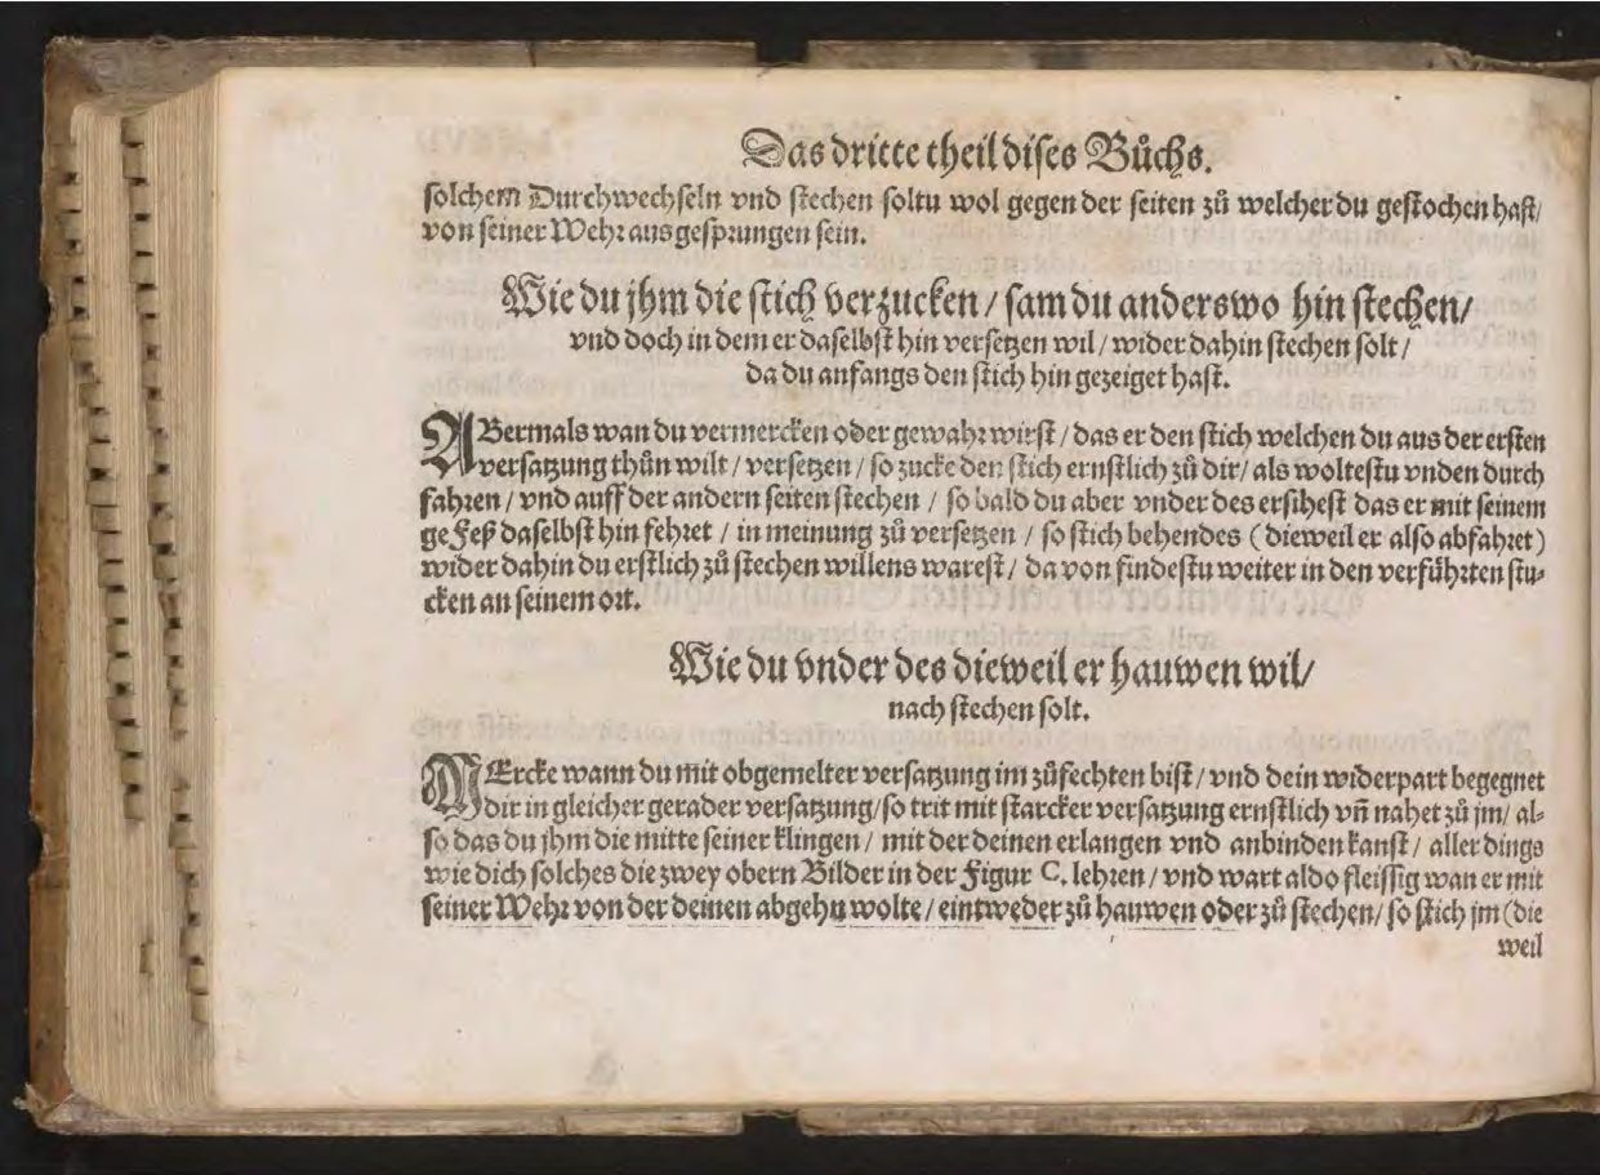 Das dritte theil dises Bůchs.
solchem Durchwechseln vnd stechen soltu wol gegen der seiten zů welcher du gestochen hast/
von seiner Wehr ausgesprungen sein.
Wie du jhm die stich verzucken / sam du anderswo hin stechen/
vnd doch in dem er daselbst hin versetzen wil / wider dahin stechen solt /
da du anfangs den stich hin gezeiget hast.
ABermals wan du vermercken oder gewahr wirst / das er den stich welchen du aus der ersten
versatzung thůn wilt / versetzen / so zucke den stich ernstlich zů dir / als woltestu vnden durch
fahren / vnd auff der andern seiten stechen / so bald du aber vnder des ersihest das er mit seinem
gefeß daselbst hin fehret / in meinung zů versetzen / so stich behendes (dieweil er also abfahret)
wider dahin du erstlich zů stechen willens warest / da von findestu weiter in den verführten stu-
cken an seinem ort.
Wie du vnder des dieweil er hauwen wil/
nach stechen solt.
MErcke wann du mit obgemelter versatzung im zůfechten bist / vnd dein widerpart begegnet
dir in gleicher gerader versatzung/ so trit mit starcker versatzung ernstlich vn̄ nahet zů jm/ al-
so das du jhm die mitte seiner klingen / mit der deinen erlangen vnd anbinden kanst / aller dings
wie dich solches die zwey obern Bilder in der Figur C. lehren / vnd wart aldo fleissig wan er mit
seiner Wehr von der deinen abgehn wolte / eintweder zů hauwen oder zů stechen/ so stich jm (die
weil